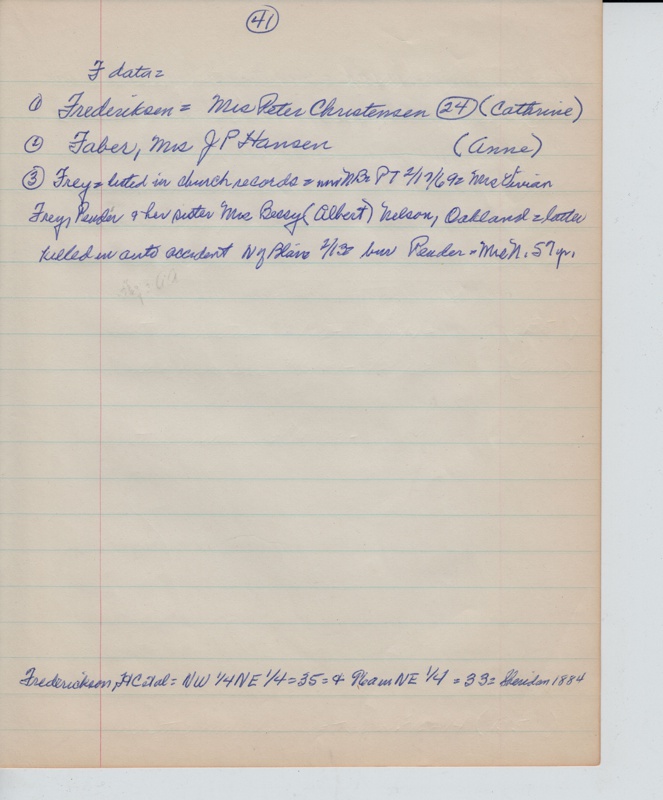 41
F data =
① Frederiksen = Mrs Peter Christensen 24 (Cathrine)
② Faber, Mrs J P Hansen (Anne)
③ Frey = listed in church records = PT 2/17/69 = Mrs Vivian
Frey, Pender & her sister Mrs Bessy (Albert) Nelson, Oakland = latter
killed in auto accident N of Blair 2/13 bur Pender = Mrs N. 57 yr.
Frederickson, HC etal = NW 1/4 NE 1/4 = 35 = & 96a in NE 1/4 = 33 = Sheridan 1884